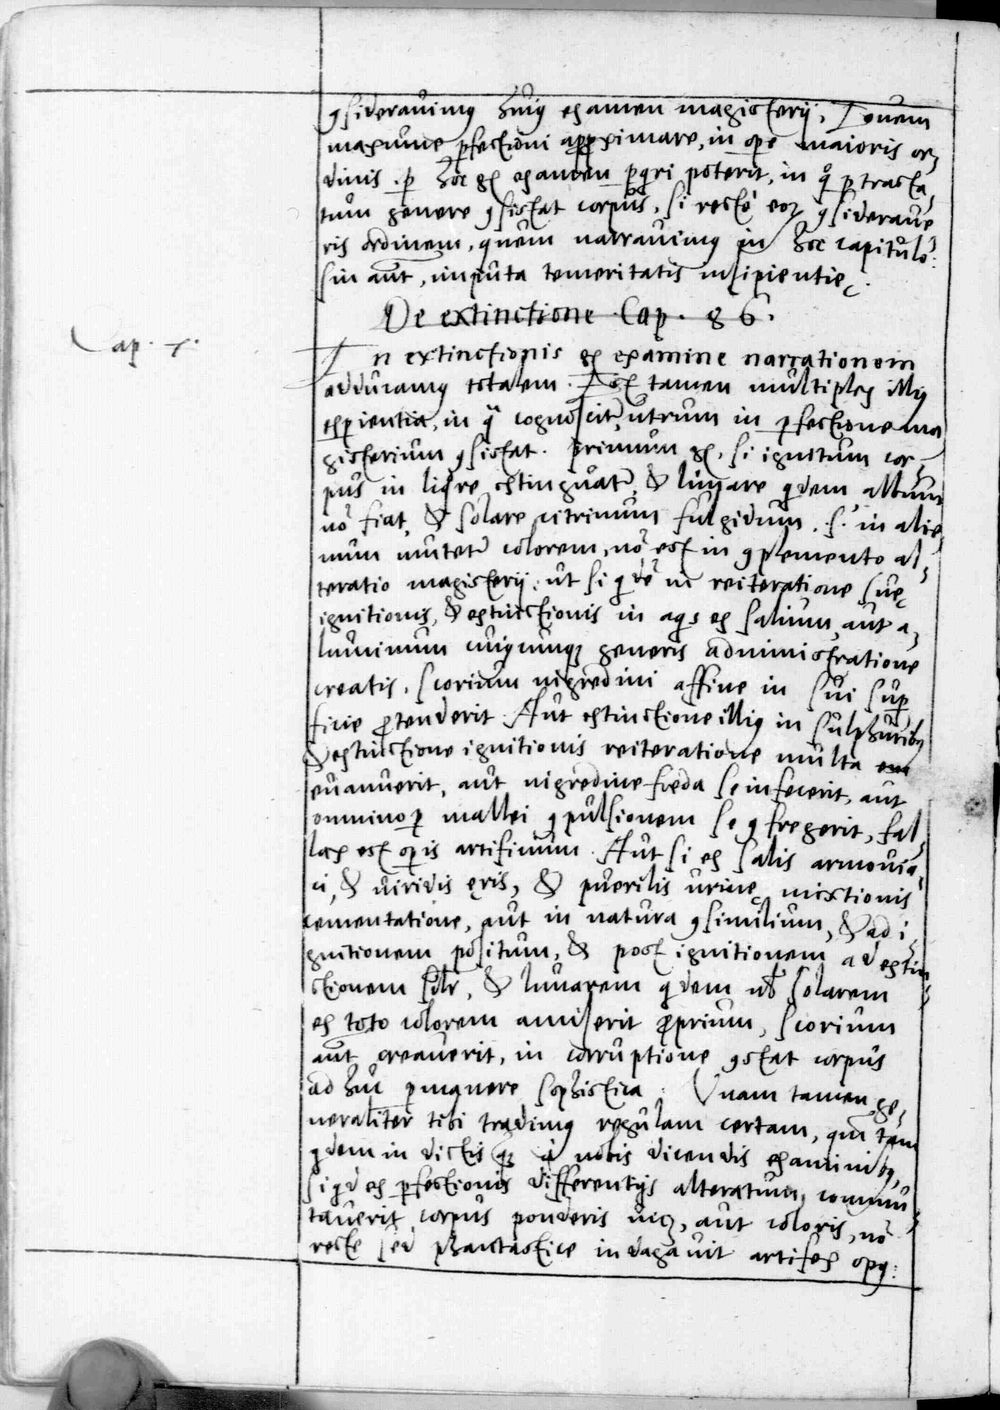 ꝯsideravimꝰ huiꝰ examen magisterij; Iovem
maxime ꝑfectioni approximare, in ope maioris or-
dinis. ꝑ hoc gͦ examen ꝑquiri poterit, in quo ꝑtracta-
tum genere ꝯsistat corpus, si recte eoꝝ ꝯsiderave-
ris ordinem, quem narravimꝰ in hoc capitulo:
sin aut, imputa temeritatis insipientię.
De extinctione Cap. 86.
Cap. X.
In extinctionis gͦ examine narrationem
adducamꝰ totalem. Est tamen multiplex illiꝰ
experientia, in qua cognoscitr, utrum in ꝑfectione ma-
gisterium ꝯsistat. Primum gͦ, si ignitum cor-
pus in liqre extinguatr, & lunare qdem album
no fiat, & solare citrinum fulgidum. s. in alie-
num mutetr colorem, no est in ꝯplemento al-
teratio magisterij: ut si qde in reiteratione suę
ignitionis, & extinctionis in aqs ex salium, aut a-
luminum cuiꝰcunqꝫ generis administratione
creatis, scorium nigredini affine in sui sup-
ficie ꝓtenderit. Aut extinctione illiꝰ in sulphuribꝰ
& extinctione ignitionis reiteratione multa
evanuerit, aut nigredine fœda se infecerit, aut
omnino ꝑ mallei ꝯpulsionem se ꝯfregerit, fal-
lax est opis artificium. Aut si ex salis armonia-
ci, & viridis ęris, & puerilis urinę mixtionis
cementatione, aut in natura ꝯsimilium, & ad i-
gnitionem positum, & post ignitionem ad extin-
ctionem, & lunarem qdem solarem
ex toto colorem amiserit ꝓprium, scorium
aut creaverit, in corruptione ꝯstat corpus
ad huc sophistica: Unam tamen ge-
neraliter tibi tradimꝰ regulam certam, tam
qdem in dictis quā a nobis dicendis examinibꝰ,
si qd ex ꝑfectionis differentijs alteratum, commu-
taverit corpus ponderis vicꝫ, aut coloris, no
recte sed phantastice indagavit artifex opꝰ: